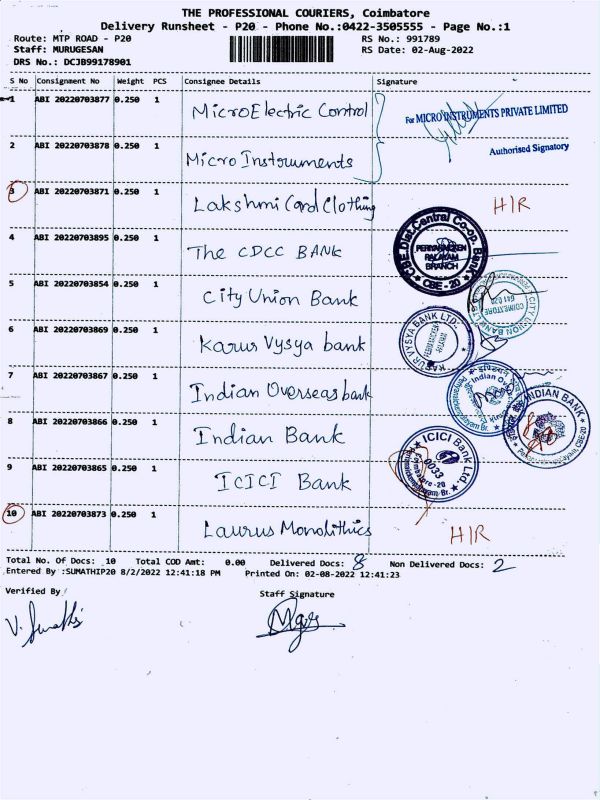 THE PROFESSIONAL COURIERS, Coimbatore
Delivery Runsheet - P20 - Phone No.:0422-3505555 - Page No.:1
Route: MTP ROAD - P20 RS No.: 991789
Staff: MURUGESAN RS Date: 02-Aug-2022
DRS No.: DCJB99178901
S No Consignment No Weight PCS Consignee Details Signature
1 ABI 20220703877 0.250 1 MicroElectric Control For MICRO INSTRUMENTS PRIVATE LIMITED
2 ABI 20220703878 0.250 1 Micro Instruments Authorised Signatory
3 ABI 20220703871 0.250 1 Lakshmi Card Clothing H/R
4 ABI 20220703895 0.250 1 The CDCC BANK CBE.Dist.Central Co-op. Bank PERIYANAICKEN PALAYAM BRANCH CBE - 20
5 ABI 20220703854 0.250 1 City Union Bank CITY UNION BANK COIMBATORE 641 020
6 ABI 20220703869 0.250 1 Karur Vysya bank KARUR VYSYA BANK LTD.
7 ABI 20220703867 0.250 1 Indian Overseas bank Indian Br.
8 ABI 20220703866 0.250 1 Indian Bank INDIAN BANK CBE-20
9 ABI 20220703865 0.250 1 ICICI Bank ICICI Bank Ltd. 0033 Coimbatore - 20 Br.
10 ABI 20220703873 0.250 1 Laurus Monolithics H/R
Total No. Of Docs: 10 Total COD Amt: 0.00 Delivered Docs: 8 Non Delivered Docs: 2
Entered By :SUMATHIP20 8/2/2022 12:41:18 PM Printed On: 02-08-2022 12:41:23
Verified By Staff Signature